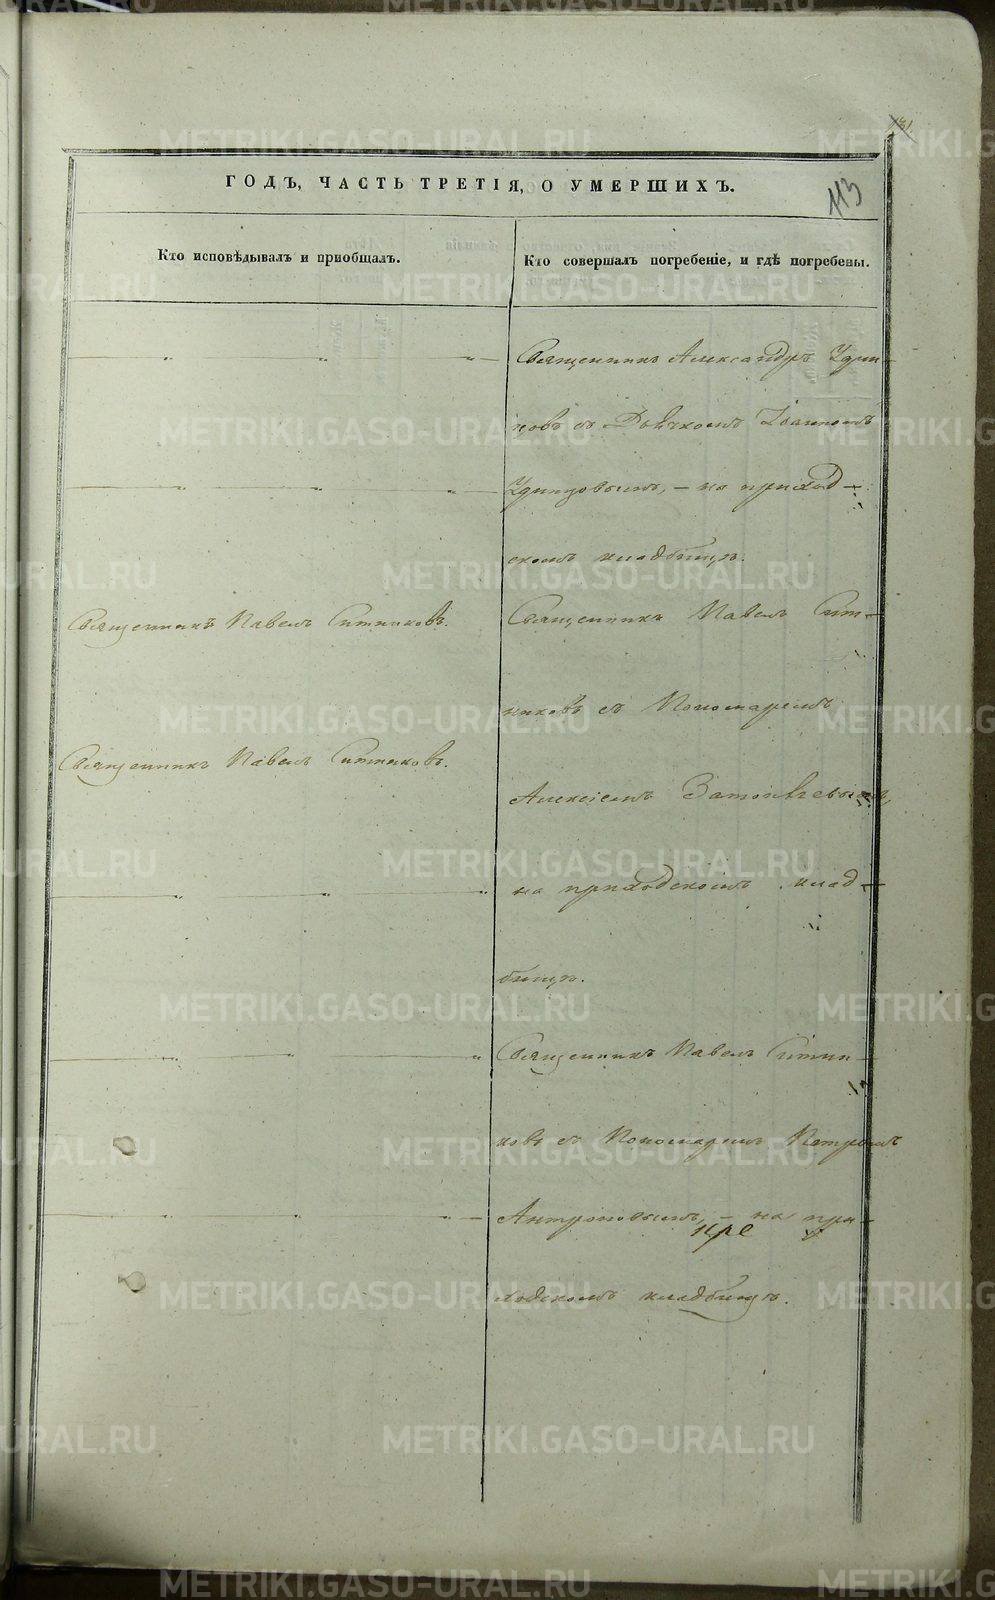 131
ГОДЪ, ЧАСТЬ ТРЕТІЯ, О УМЕРШИХЪ.
113
Кто исповѣдывалъ и приобщалъ.
Кто совершалъ погребеніе, и гдѣ погребены.
Священникъ Александръ Удин-
цовъ съ Дьячкомъ Іоанномъ
Удинцовымъ, – на приход-
скомъ кладбищѣ.
Священникъ Павелъ Ситниковъ.
Священникъ Павелъ Сит-
никовъ съ Пономаремъ
Священникъ Павелъ Ситниковъ.
Алексіемъ
на приходскомъ клад-
бищѣ.
Священникъ Павелъ Ситни-
ковъ съ Пономаремъ Петромъ
Антроповымъ, – на при-
ходскомъ кладбищѣ.
METRIKI.GASO-URAL.RU